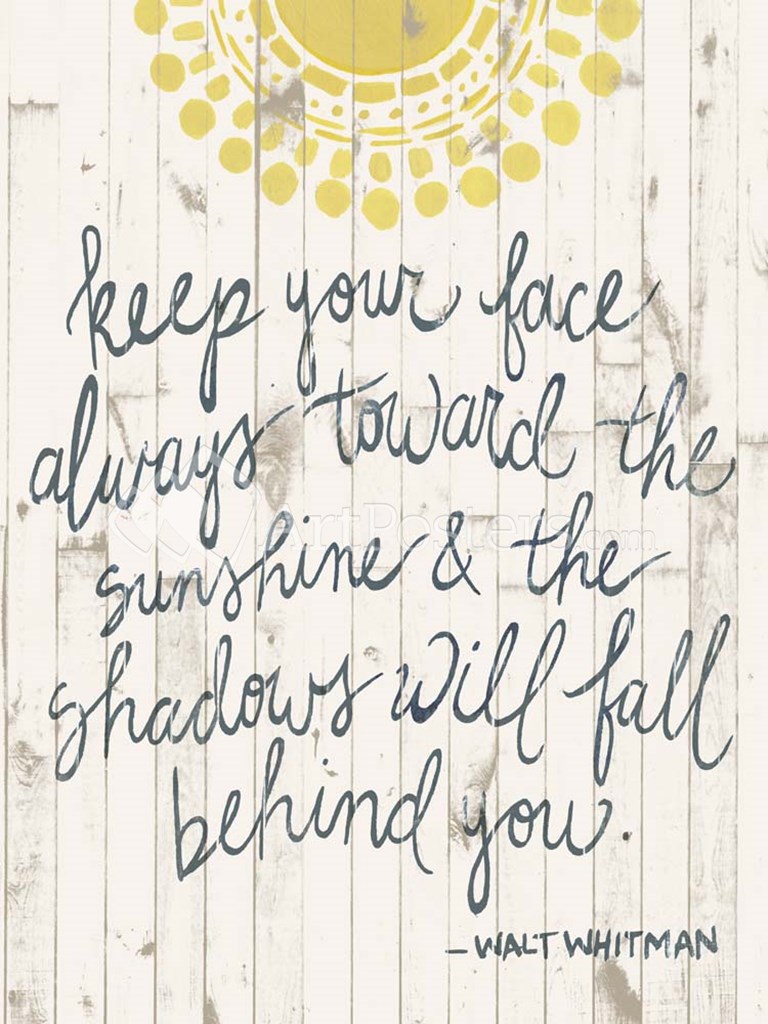 keep your face
always toward the
sunshine & the
shadows will fall
behind you.
- WALT WHITMAN
ArtPosters.com